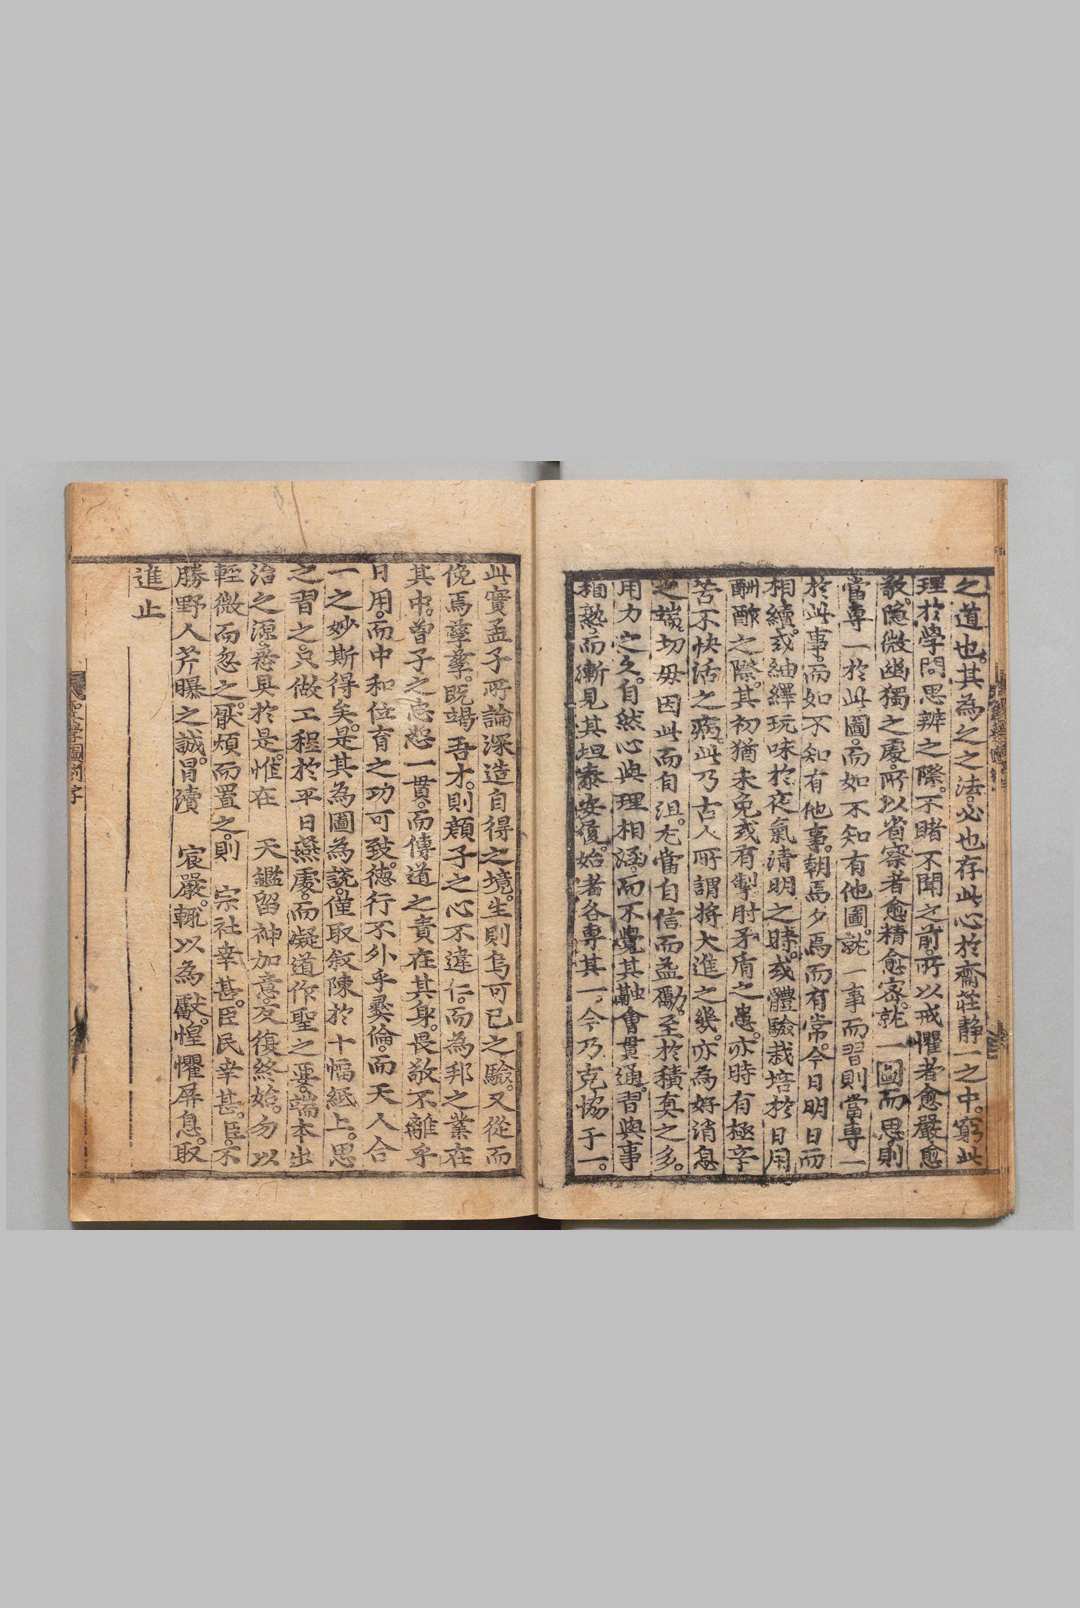 之道也。其為之之法。必也存此心於齋莊靜一之中。窮此
理於學問思辨之際。不睹不聞之前。所以戒懼者愈嚴愈
敬。隱微幽獨之處。所以省察者愈精愈密。就一圖而思。則
當專一於此圖。而如不知有他圖。就一事而習。則當專一
於此事。而如不知有他事。朝焉夕焉而有常。今日明日而
相續。或紬繹玩味於夜氣清明之時。或體驗栽培於日用
酬酢之際。其初猶未免或有掣肘矛盾之患。亦時有極辛
苦不快活之病。此乃古人所謂將大進之幾。亦為好消息
之端。切毋因此而自沮。尤當自信而益勵。至於積真之多。
用力之久。自然心與理相涵。而不覺其融會貫通。習與事
相熟。而漸見其坦泰安履。始者各專其一。今乃克協于一。
此實孟子所論深造自得之境。生則烏可已之驗。又從而
俛焉孳孳。既竭吾才。則顏子之心不違仁。而為邦之業在
其中。曾子之忠恕一貫。而傳道之責在其身。畏敬不離乎
日用。而中和位育之功可致。德行不外乎彝倫。而天人合
一之妙斯得矣。是其為圖為說。僅取敘陳於十幅紙上。思
之習之。只做工程於平日燕處。而凝道作聖之要。端本出
治之源。悉具於是。惟在 天鑑留神加意。反復終始。勿以
輕微而忽之。厭煩而置之。則 宗社幸甚。臣民幸甚。臣不
勝野人芹曝之誠。冒瀆 宸嚴。輒以為獻。惶懼屏息。取
進止